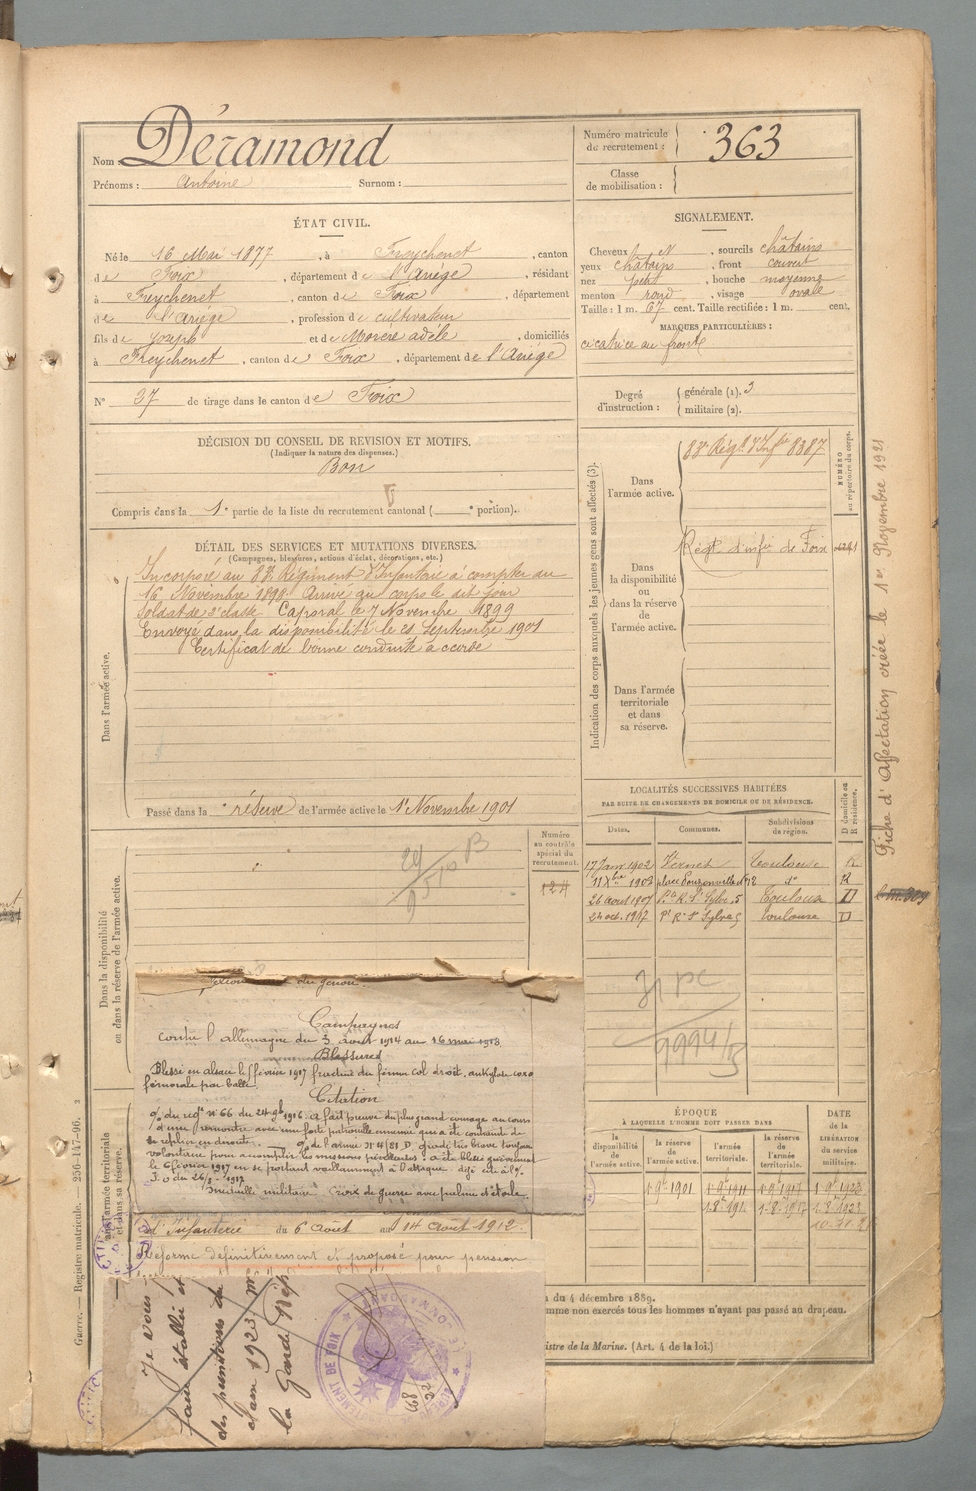 Nom : Déramond
Prénoms : Antoine Surnom :
Numéro matricule de recrutement : 363
Classe de mobilisation :
ÉTAT CIVIL.
Né le 16 Mai 1877, à Freychenet, canton
de Foix, département de l'Ariège, résidant
à Freychenet, canton de Foix, département
de l'Ariège, profession de cultivateur
fils de Joseph et de adèle, domiciliés
à Freychenet, canton de Foix, département de l'Ariège
N° 37 de tirage dans le canton de Foix
SIGNALEMENT.
Cheveux et, sourcils châtains
yeux châtains, front couvert
nez petit, bouche moyenne
menton rond, visage ovale
Taille : 1 m. 67 cent. Taille rectifiée : 1 m. cent.
MARQUES PARTICULIÈRES :
cicatrice au front
Degré d'instruction : générale (1). 3
militaire (2).
DÉCISION DU CONSEIL DE REVISION ET MOTIFS.
(Indiquer la nature des dispenses.)
Bon
Compris dans la 1e partie de la liste du recrutement cantonal ( e portion).
DÉTAIL DES SERVICES ET MUTATIONS DIVERSES.
(Campagnes, blessures, actions d'éclat, décorations, etc.)
Dans l'armée active.
Incorporé au 83e Régiment d'Infanterie à compter du
16 Novembre 1898 Arrivé au corps le dit jour
Soldat de 2e classe. Caporal le 7 Novembre 1899
Envoyé dans la disponibilité le 21 Septembre 1901
Certificat de bonne conduite accordé
Passé dans la réserve de l'armée active le 1er Novembre 1901
Indication des corps auxquels les jeunes gens sont affectés (3).
NUMÉRO au répertoire du corps.
Dans l'armée active.
83e Régt d'Infrie 8387
Dans la disponibilité ou dans la réserve de l'armée active.
Régt d'infie de Foix
Dans l'armée territoriale et dans sa réserve.
Fiche d'Affectation créée le 1er Novembre 1921
LOCALITÉS SUCCESSIVES HABITÉES
PAR SUITE DE CHANGEMENTS DE DOMICILE OU DE RÉSIDENCE.
Dates. Communes. Subdivisions de région. D domicile ou R résidence.
17 Janv 1902 Vernet Toulouse R
11 Xbre 1903 place 12 do R
26 aout 1907 Pte R. St Sylve, 5 Toulouse D
24 oct. 1917 Pt R St Sylve 5 toulouse D
Numéro au contrôle spécial du recrutement.
124
Dans la disponibilité ou dans la réserve de l'armée active.
9994/B
du genou.
Campagnes
contre l'allemagne du 3 aout 1914 au 16 mai 1918
Blessures
Blessé en alsace le février 1917 fracture du fémur col droit, ankylose coxo
fémorale par balle.
Citation
O/ du regt n° 66 du 24 9b 1916. a fait preuve du plus grand courage au cours
d'une rencontre avec une forte patrouille ennemie qui a été contrainte de
se replier en déroute. O/ de l'armée n° 481 D. gradé très brave toujours
volontaire pour accomplir les missions périlleuses : a été blessé grièvement
le 6 février 1917 en se portant vaillamment à l'attaque. déjà cité à l'O/.
J. O du 26/ 1917
médaille militaire croix de guerre avec palme et étoile
armée territoriale et dans sa réserve.
d'Infanterie du 6 Août au 14 Août 1912.
Réformé définitivement et proposé pour pension
je vous
faire établir
des punitions de
clam 1923
la Garde Rép
MENT DE FOIX
68/32
ÉPOQUE
À LAQUELLE L'HOMME DOIT PASSER DANS
la disponibilité de l'armée active. la réserve de l'armée active. l'armée territoriale. la réserve de l'armée territoriale.
DATE de la LIBÉRATION du service militaire.
1 9b 1901 1 9b 1911 1 9b 1917 1 9b 1923
1-8b 191 1-8b 1917 1-8b 1923
du 4 décembre 1889.
mme non exercés tous les hommes n'ayant pas passé au drapeau.
istre de la Marine. (Art. 4 de la loi.)
Guerre. — Registre matricule. — 256-1447-96.